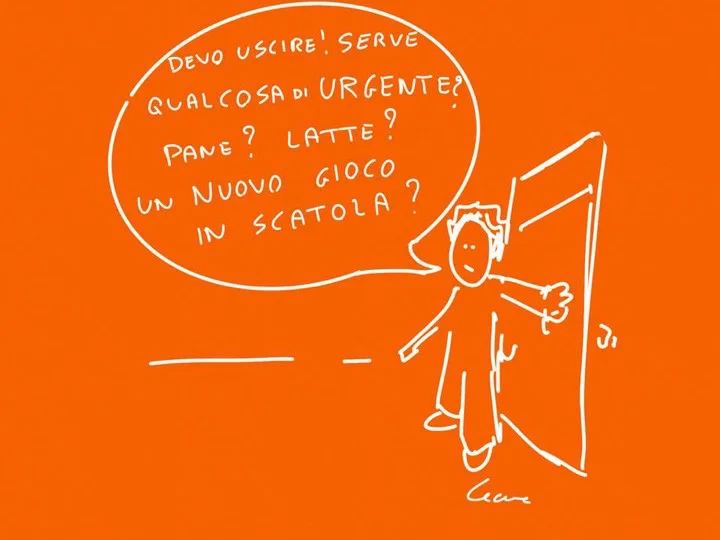 DEVO USCIRE! SERVE
QUALCOSA DI URGENTE?
PANE? LATTE?
UN NUOVO GIOCO
IN SCATOLA?